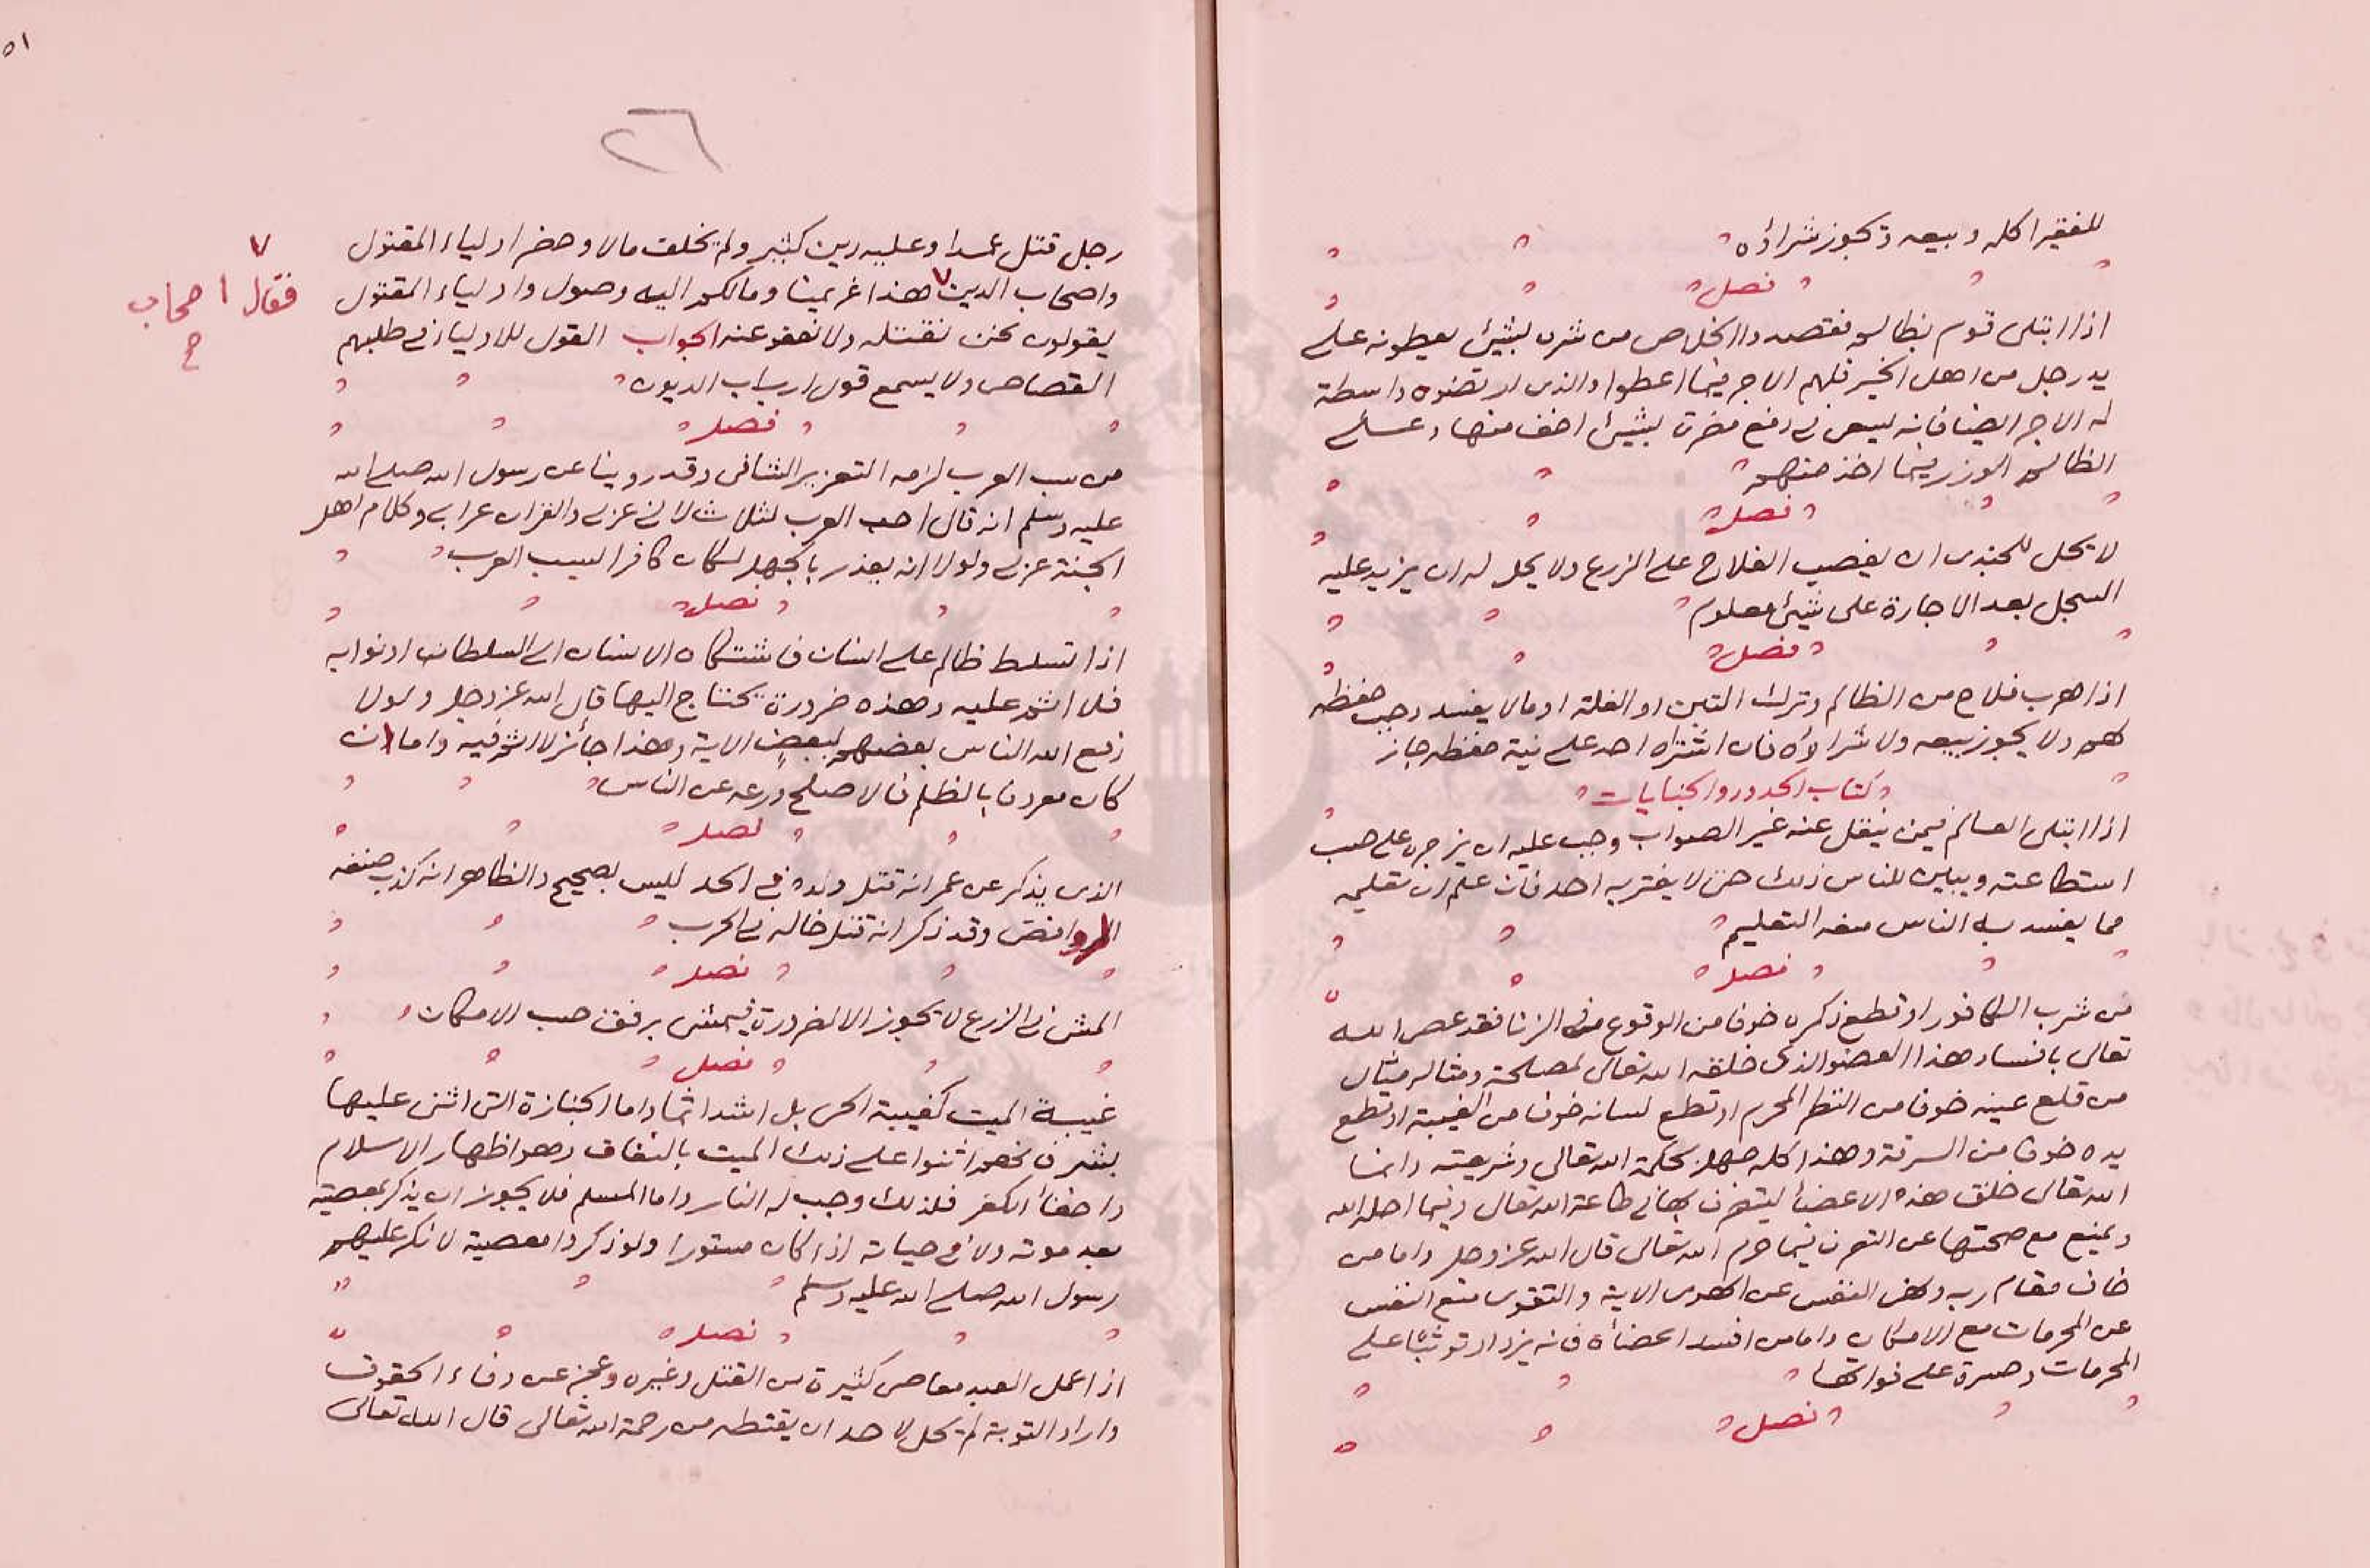 للفقير اكله وبيعه ويجوز شراؤه
فصل
اذا ابتلى قوم بظالم فقصدوا الخلاص من شره بشيئ يعطونه على
يد رجل من اهل الخير فلهم الاجر فيما اعطوا والذى ارتضوه واسطة
له الاجر ايضا فانه ليسعى فى دفع مضرة بشيئ اخف منها وعلى
الظالم الوزر فيما اخذ منهم
فصل
لا يحل للجندى ان يغصب الفلاح على الزرع ولا يحل له ان يزيد عليه
السجل بعد الاجارة على شيئ معلوم
فصل
اذا هرب فلاح من الظالم وترك التبن او الغلة او مالا يفسد وجب حفظه
لهم ولا يجوز بيعه ولا شراؤه فان اشتراه احد على نية حفظه جاز
كتاب الحدود والجنايات
اذا ابتلى العالم فيمن ينقل عنه غير الصواب وجب عليه ان يزجره على حسب
استطاعته ويبين للناس ذلك حتى لا يغتر به احد فان علم ان تعليمه
مما يفسد به الناس منعه التعليم
فصل
من شرب الكافور او قطع ذكره خوفا من الوقوع فى الزنا فقد عصى الله
تعالى بافساد هذا العضو الذى خلقه الله تعالى لمصلحة ومثاله مثال
من قلع عينه خوفا من النظر المحرم او قطع لسانه خوفا من الغيبة او قطع
يده خوفا من السرقة وهذا كله جهل بحكمة الله تعالى وشريعته وانما
الله تعالى خلق هذه الاعضأ ليتصرف بها فى طاعة الله تعالى وفيما احله الله
ويمنع مع صحتها عن التصرف فيما حرم الله تعالى قال الله عز وجل واما من
خاف مقام ربه ونهى النفس عن الهوى الاية والتقوى منع النفس
عن المحرمات مع الامكان واما من افسد اعضأه فانه يزداد توثبا على
المحرمات وحسرة على فواتها
فصل
٥١
٢٦
رجل قتل عمدا وعليه دين كثير ولم يخلف مالا وحضر اولياء المقتول
واصحاب الدين هذا غريمنا ومالكم اليه وصول واولياء المقتول
فقال اصحاب
ح
يقولون نحن نقتله ولا نعفو عنه الجواب القول للاولياء فى طلبهم
القصاص ولا يسمع قول ارباب الديون
فصل
من سب العرب لزمه التعزير الشافى وقد روينا عن رسول الله صلى الله
عليه وسلم انه قال احب العرب لثلاث لانى عربى والقران عرابى وكلام اهل
الجنة عربى ولولا انه يعذر بالجهل لكان كافرا لسب العرب
فصل
اذا تسلط ظالم على انسان فاشتكاه الانسان الى السلطان او نوابه
فلا اثم عليه وهذه ضرورة تحتاج اليها قال الله عز وجل ولولا
دفع الله الناس بعضهم ببعض الاية وهذا جائز لا اثم فيه واما ان
كان معروفا بالظلم فالاصلح ردعه عن الناس
فصل
الذى يذكر عن عمر انه قتل ولده فى الحد ليس بصحيح والظاهر انه كذب صنفه
الروافض وقد ذكر انه قتل خاله فى الحرب
فصل
المشى فى الزرع لا يجوز الا لضرورة فيمشى برفق حسب الامكان
فصل
غيبة الميت كغيبة الحى بل اشد اثما واما الجنازة التى اثنى عليها
بشر فانهم اثنوا على ذلك الميت بالنفاق وهو اظهار الاسلام
واخفأ الكفر فلذلك وجب له النار واما المسلم فلا يجوز ان يذكر بمعصية
بعد موته ولا فى حياته اذا كان مستورا ولو ذكروا معصية لانكر عليهم
رسول الله صلى الله عليه وسلم
فصل
اذا عمل العبد معاصى كثيرة من القتل وغيره وعجز عن وفاء الحقوق
واراد التوبة لم يحل لاحد ان يقنطه من رحمة الله تعالى قال الله تعالى